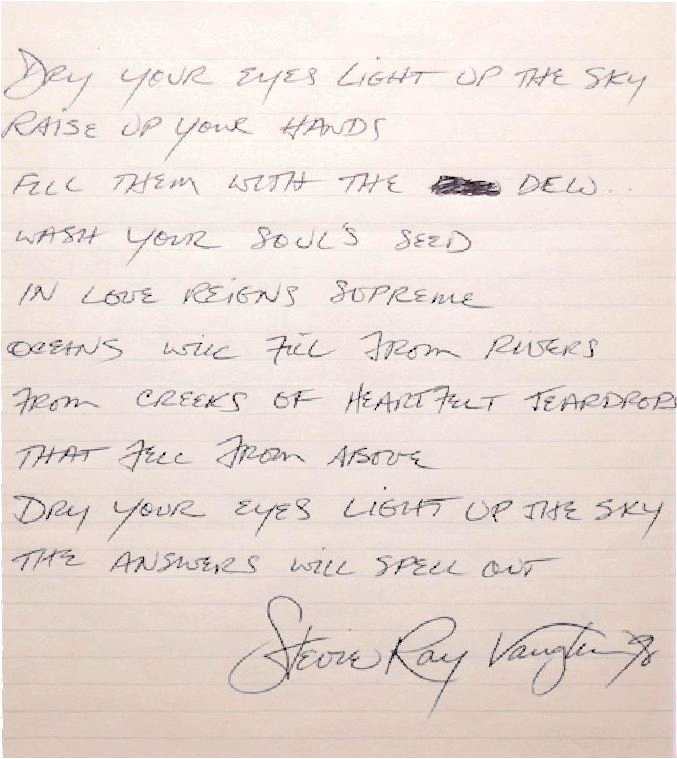 DRY YOUR EYES LIGHT UP THE SKY
RAISE UP YOUR HANDS
FILL THEM WITH THE DEW..
WASH YOUR SOUL'S SEED
IN LOVE REIGNS SUPREME
OCEANS WILL FILL FROM RIVERS
FROM CREEKS OF HEARTFELT TEARDROPS
THAT FELL FROM ABOVE
DRY YOUR EYES LIGHT UP THE SKY
THE ANSWERS WILL SPELL OUT
Stevie Ray Vaughan